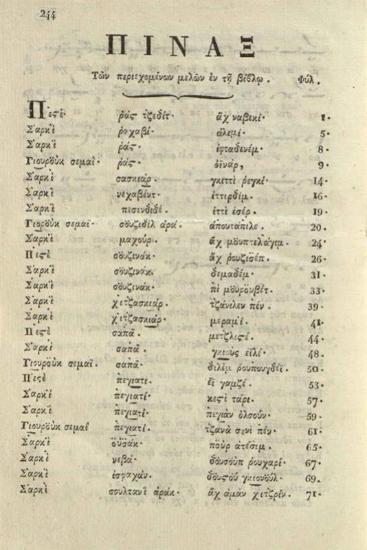 244
ΠΙΝΑΞ
Τῶν περιεχομένων μελῶν ἐν τῇ βίβλῳ. Φύλ.
Πεσέ ῥάς τζεδίτ· ἂχ ναβεκέ· 1·
Σαρκὶ ῥαχαβί· ἀλεμέ· 5·
Σαρκὶ ῥάς· ἐφταδενέμ· 8·
Γιουρούκ σεμαΐ· ῥάς· ὀϊνάρ, 9·
Σαρκὶ σασκιάρ. γκεττὶ ῥεγκέ· 14·
Σαρκὶ νεχαβέντ· ἐττιρδίμ. 16·
Σαρκὶ πισενδιδέ. ἐττὶ ἐσέρ. 19·
Γιουρούκ σεμαΐ· σουζιδίλ ἀρά. ἀπουτάπιλε. 20.
Σαρκὶ μαχούρ. ἂχ μουπτελάγιμ. 24·
Πεσὲ σουζινάκ. ἂχ ρουζισέπ. 26·
Σαρκὶ σουζινάκ. δεμαδέμ· 31
Σαρκὶ σουζινάκ. πὶ μουρουβέτ. 33·
Σαρκὶ χιτζασκιάρ. τζάνιλεν πέν. 39·
Σαρκὶ χιτζασκιάρ. μεραμέ. 41·
Πεσὲ σαπᾶ. μετζλισέ. 44·
Σαρκὶ σαπᾶ. γκιουλ εἰλέ· 48·
Γιουρούκ σεμαΐ. σαπᾶ· διλέμ ρουπουγδέϊ· 50·
Πεσὲ πεγιατί. εἲ γαμζέ· 53·
Σαρκὶ πεγιατί· κεσὶ τάρε. 57·
Σαρκὶ πεγιατί· πεγιὰν ὀλσούν· 59·
Γιουρούκ σεμαΐ πεγιατί. τζανὰ σενὶ πέν· 61·
Σαρκὶ οὐσάκ· πούρ ἀτέσιμ. 65·
Σαρκὶ νεβᾶ· δουσούπ ρουχαρέ· 67·
Σαρκὶ ἰσφαχάν. δουσοὺ γκιονούλ· 69.
Σαρκὶ σουλτανὶ ἀράκ· ἂχ ἀμὰν χιτζρίν. 71·